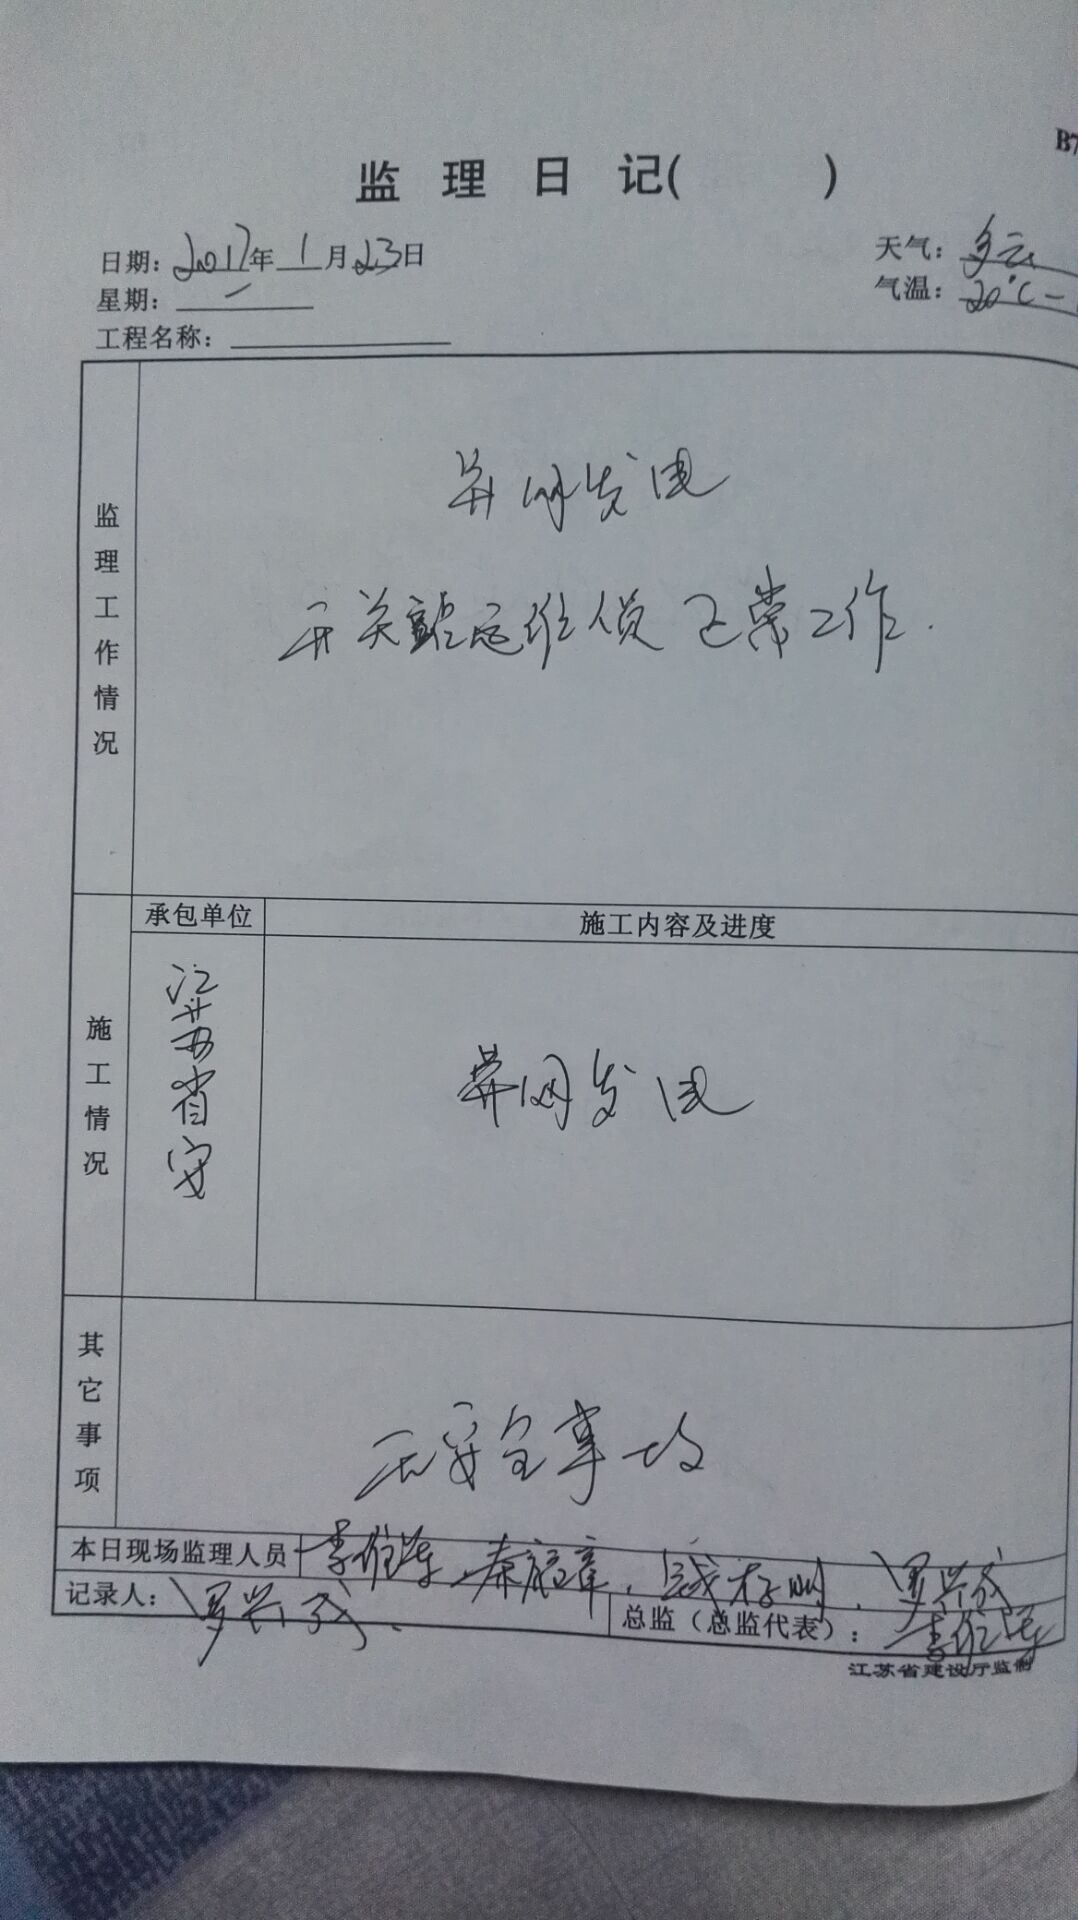 B7
监理日记( )
日期：2017年1月23日
天气：多云
星期：一
气温：20℃-
工程名称：
监理工作情况
并网发电
开关站运维人员正常工作.
承包单位
施工内容及进度
施工情况
江苏省安
并网发电
其它事项
无安全事故
本日现场监理人员
罗兴成
记录人：罗兴成.
总监（总监代表）：
江苏省建设厅监制